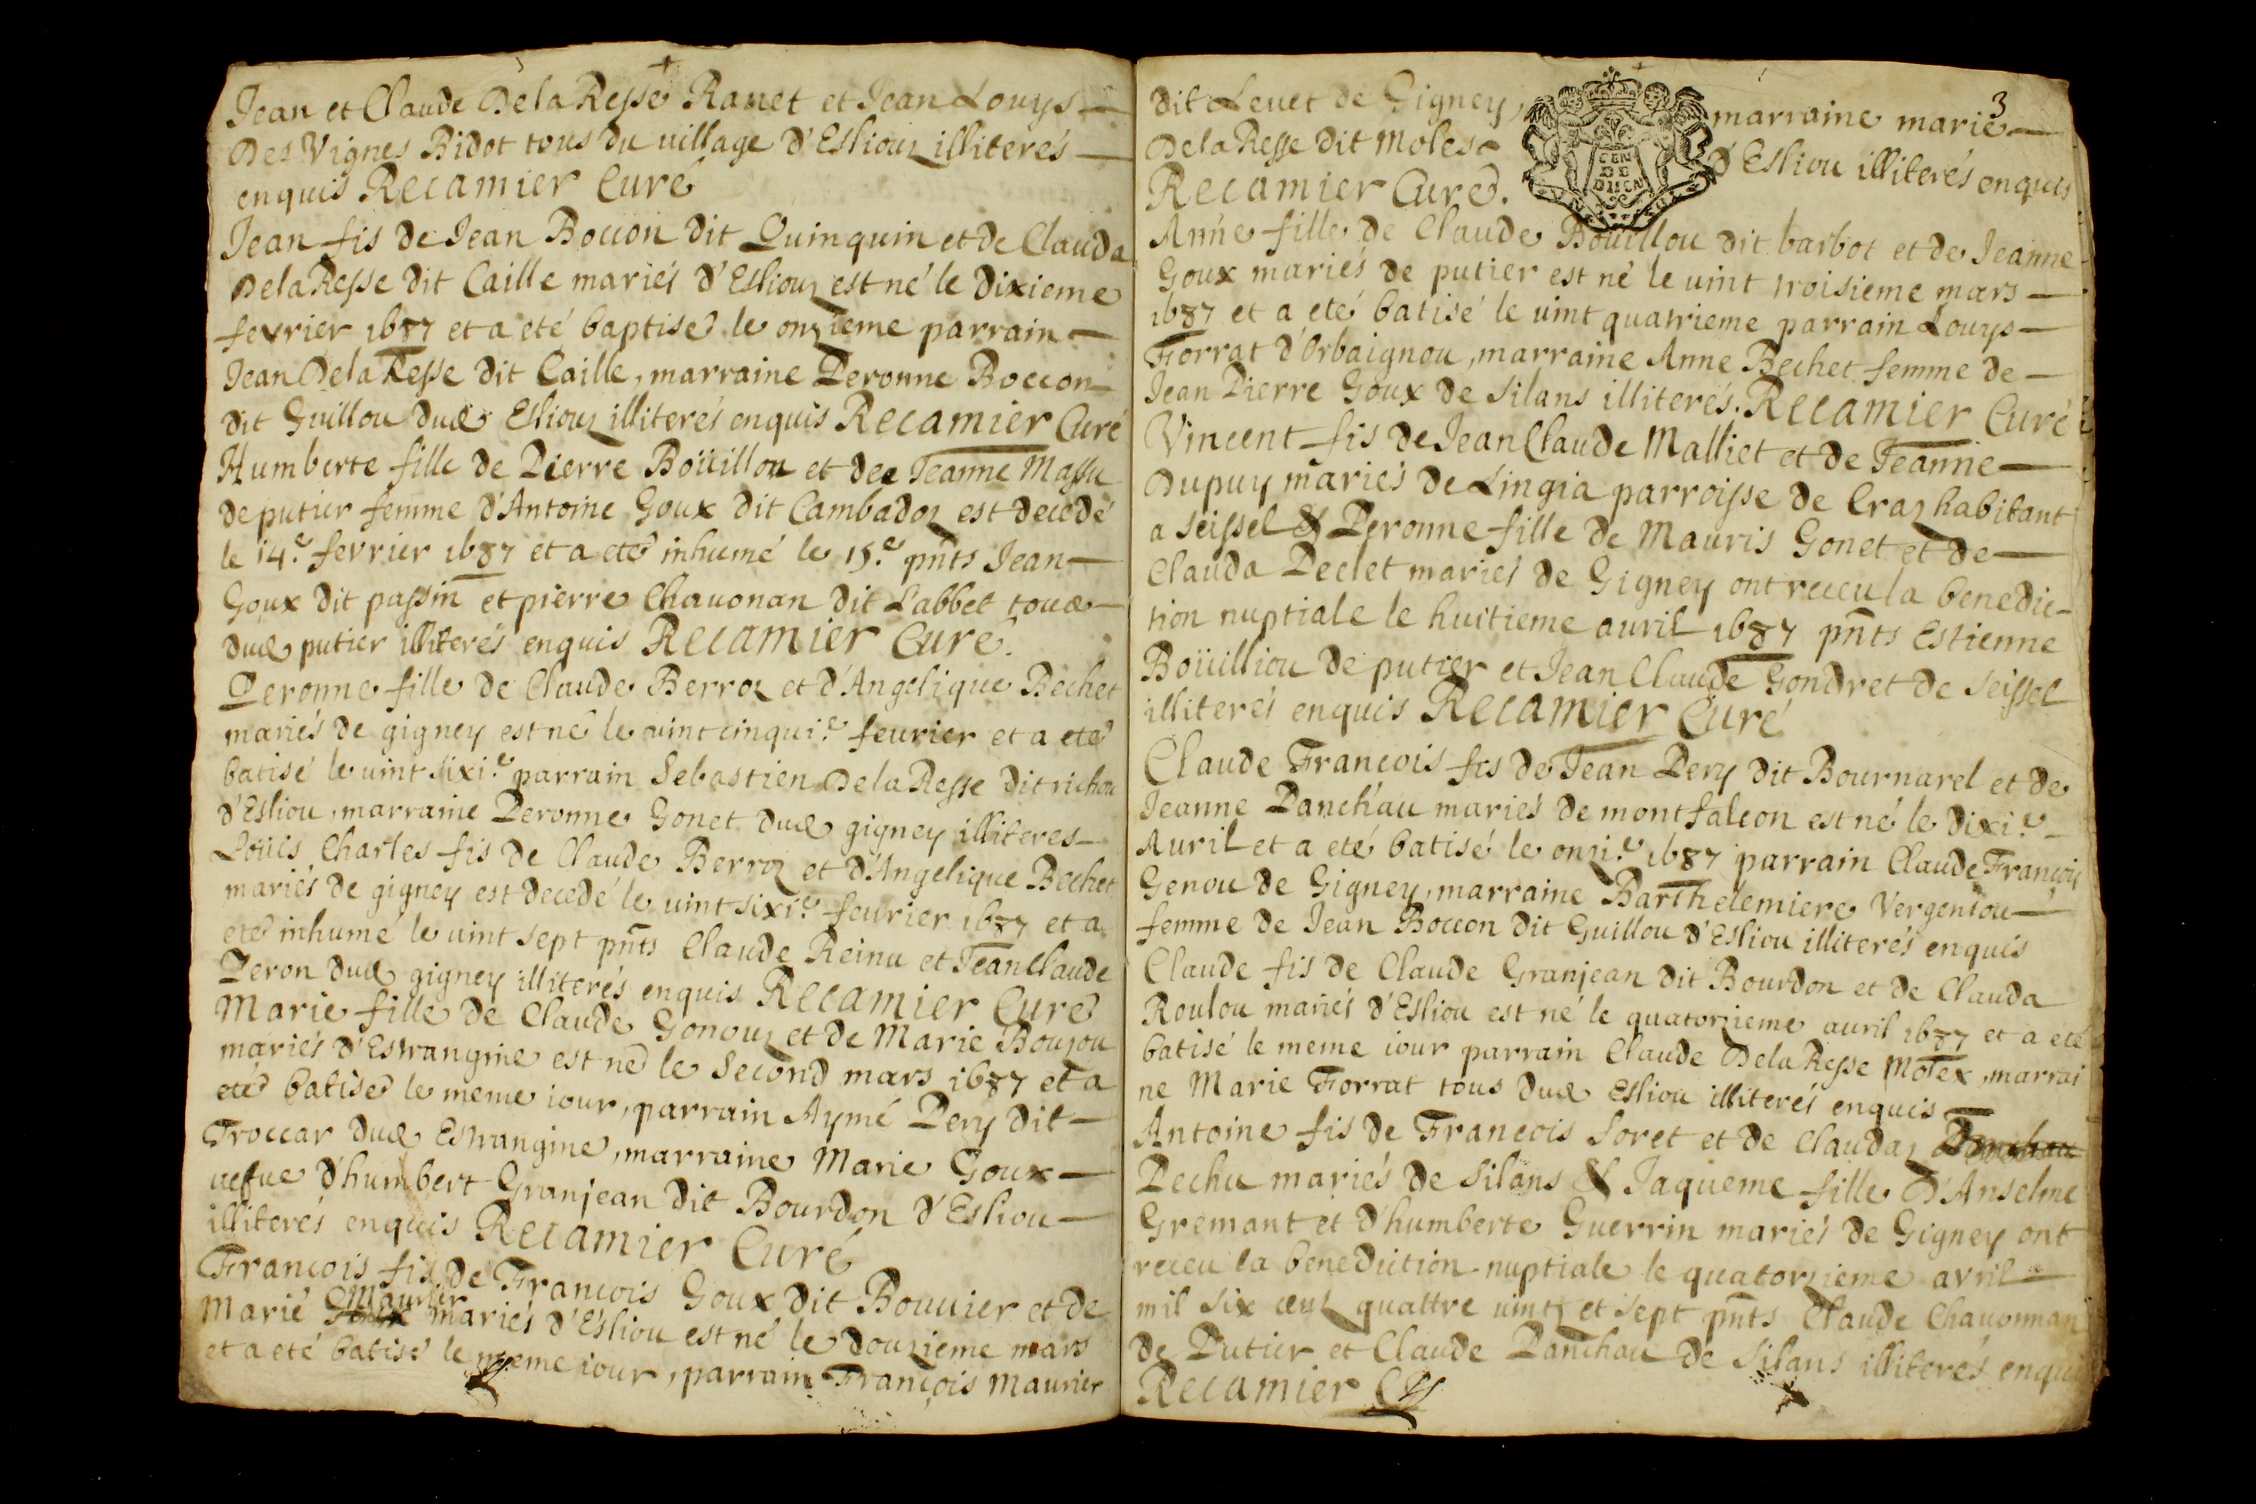 Jean et Claude DelaResse Ranet et Jean Louys
Des Vignes Bidot tous du village d'Esliouz illiterés
enquis Recamier Curé
Jean fis de Jean Boccon dit Quinquin et de Clauda
DelaResse dit Caille mariés d'Esliouz est né le dixieme
fevrier 1687 et a eté baptisé le onzieme parrain
Jean DelaResse dit Caille, marraine Peronne Boccon
dit Guillou dud Esliouz illiterés enquis Recamier Curé
Humberte fille de Pierre Boüillou et dee Jeanne Massu
de putier femme d'Antoine Goux dit Cambadoz est decedé
le 14.e fevrier 1687 et a eté inhumé le 15.e pñts Jean
Goux dit passin et pierre Chauonan dit Labbet tous
dud putier illiterés enquis Recamier Curé.
Peronne fille de Claude Berroz et d'Angelique Bechet
mariés de gigney est né le uint cinqui.e feurier et a eté
batisé le uint sixi.e parrain Sebastien DelaResse dit richou
d'Esliou, marraine Peronne Gonet dud gigney illiteres
Loüis Charles fis de Claude Berroz et d'Angelique Bechet
mariés de gigney est decedé le uint sixi.e feurier 1687 et a
eté inhume le uint sept pñts Claude Reinu et Jean Claude
Peron dud gigney illiterés enquis Recamier Curé
Marie fille de Claude Gonouz et de Marie Boujou
mariés d'Estrangine est né le second mars 1687 et a
eté batisé le meme iour, parrain Aymé Pery dit
Troccar dud Estrangine, marraine Marie Goux
uefue d'humbert Granjean dit Bourdon d'Esliou
illiterés enquis Recamier Curé
François fis de François Goux dit Bouuier et de
Maurier
Marie mariés d'Esliou est né le douzieme mars
et a eté batisé le meme iour, parrain François Maurier
3
dit Leuet de Gigney, marraine marie
DelaResse dit Molesc d'Esliou illiterés enquis
Recamier Curé.
GEN
DE
DIJON
Anne fille de Claude Boüillou dit barbot et de Jeanne
Goux mariés de putier est né le uint troisieme mars
1687 et a eté batisé le uint quatrieme parrain Louys
Forrat d'Orbaignou, marraine Anne Bechet femme de
Jean Pierre Goux de silans illiterés. Recamier Curé
Vincent fis de Jean Claude Malliet et de Jeanne
Dupuy mariés de Lingia parroisse de Craz habitant
a seissel & Peronne fille de Mauris Gonet et de
Clauda Peclet mariés de Gigney ont receu la benedic-
tion nuptiale le huitieme auril 1687 pñts Estienne
Boüilliou de putier et Jean Claude Gondret de seissel
illiterés enquis Recamier Curé
Claude François fis de Jean Pery dit Bournarel et de
Jeanne Panchau mariés de montfalcon est né le dixi.e
Auril et a eté batisé le onzi.e 1687 parrain Claude François
Genou de Gigney, marraine Barthelemiere Vergeniou
femme de Jean Boccon dit Guillou d'Esliou illiterés enquis
Claude fis de Claude Granjean dit Bourdon et de Clauda
Roulou mariés d'Esliou est né le quatorzieme auril 1687 et a eté
batisé le meme iour parrain Claude DelaResse Molex, marrai
ne Marie Forrat tous dud Esliou illiterés enquis
Antoine fis de François Soret et de Claudaz Panchau
Pechu mariés de silans & Jaqueme fille d'Anselme
Gremant et d'humberte Guerrin mariés de Gigney ont
receu la benediction nuptiale le quatorzieme avril
mil six cents quattre uints et sept pñts Claude Chauonnan
de Putier et Claude Panchau de silans illiterés enquis
Recamier